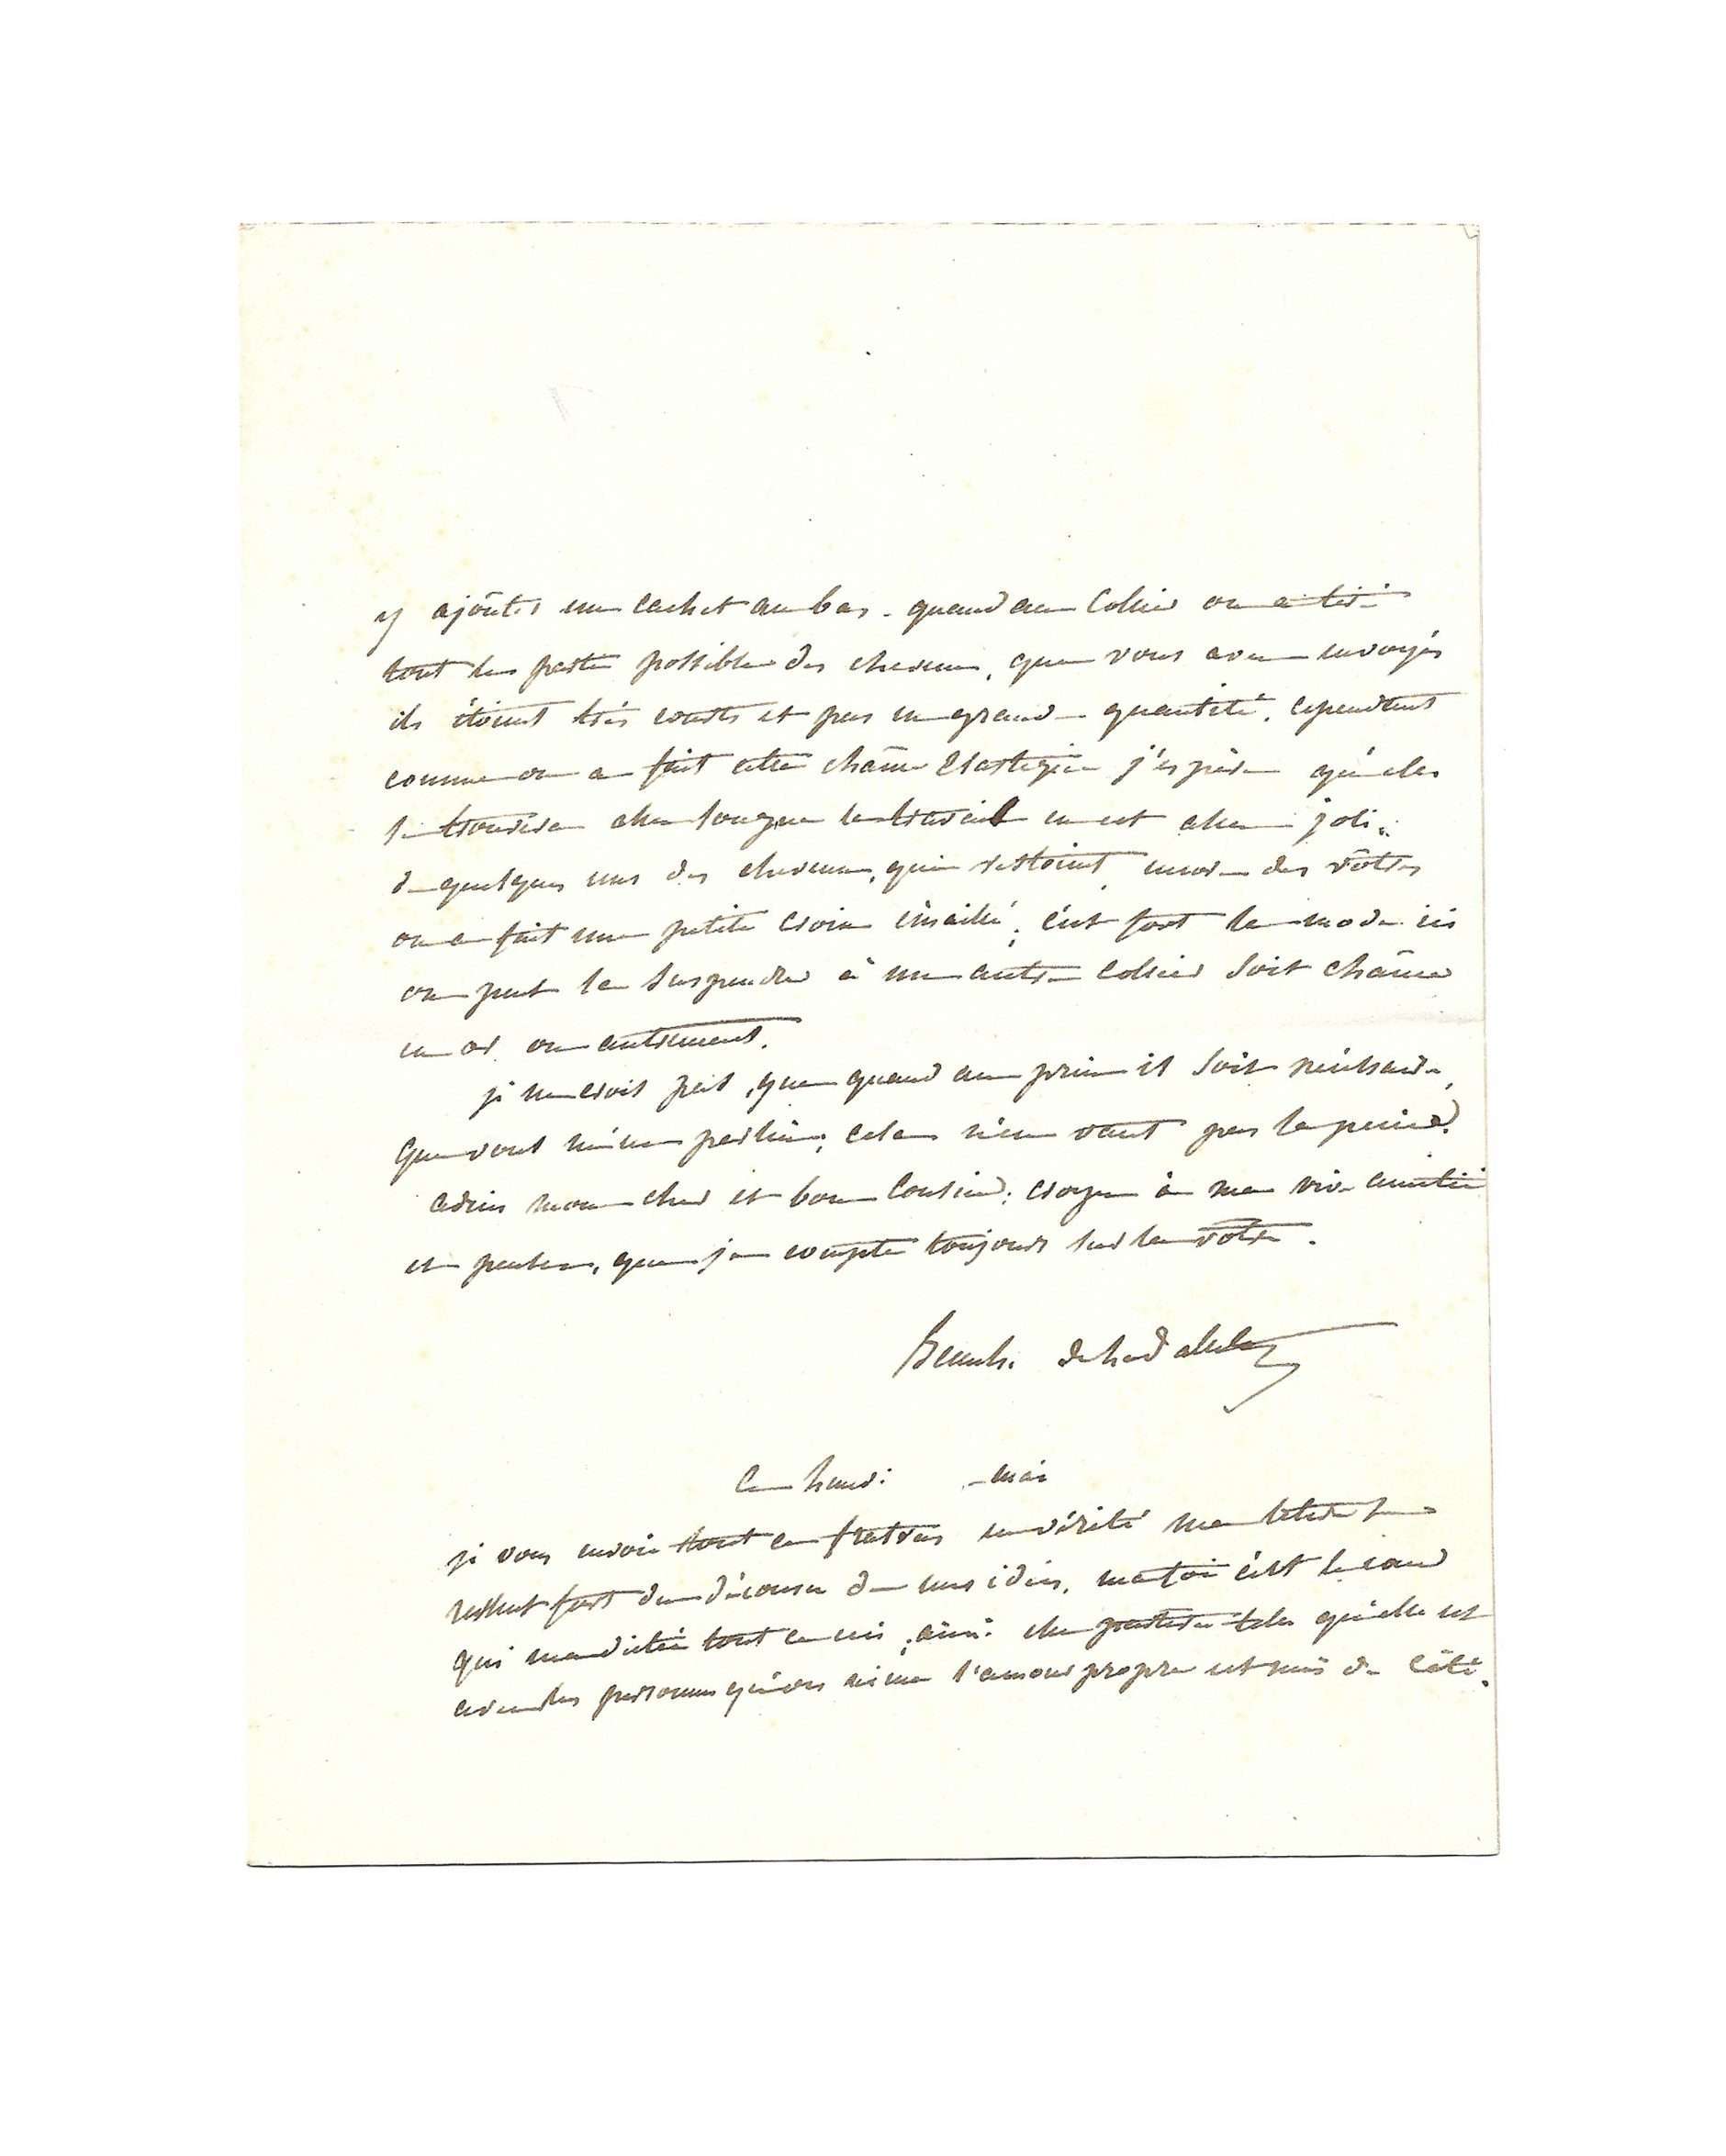 y ajoûter un cachet au bas. quand au Collier on a tiré
tout le partie possible des cheveux, que vous aver envoyés
ils étoient très courts et pas en grande quantité. cependent
comme on a fait cette chaîne Elastique j'espère qu'elle
se trouvera assez longue le travail en est assez joli.
de quelques uns des cheveux, qui restoient encore des vôtres
on a fait une petite croix émaillé; c'est fort la mode ici
on peut la suspendre à un autre Collier soit chaîne
en or ou autrement.
je ne crois pas, que quand au prix il soit nécéssaire,
que vous m'en parliez; cela n'en vaut pas la peine.
adieu mon cher et bon Cousin; croyez à ma vive amitié
et pensez, que je compte toujours sur la votre.
Ce Lundi mai
je vous envoie tout ce fratras en vérité ma lettre se
ressent fort du décousu de mes idées. ma foi c'est le cœur
qui m'a dictée tout ceci, ainsi elle partira telle qu'elle est
avec les personnes qu'on aime l'amour propre est mis de côté.